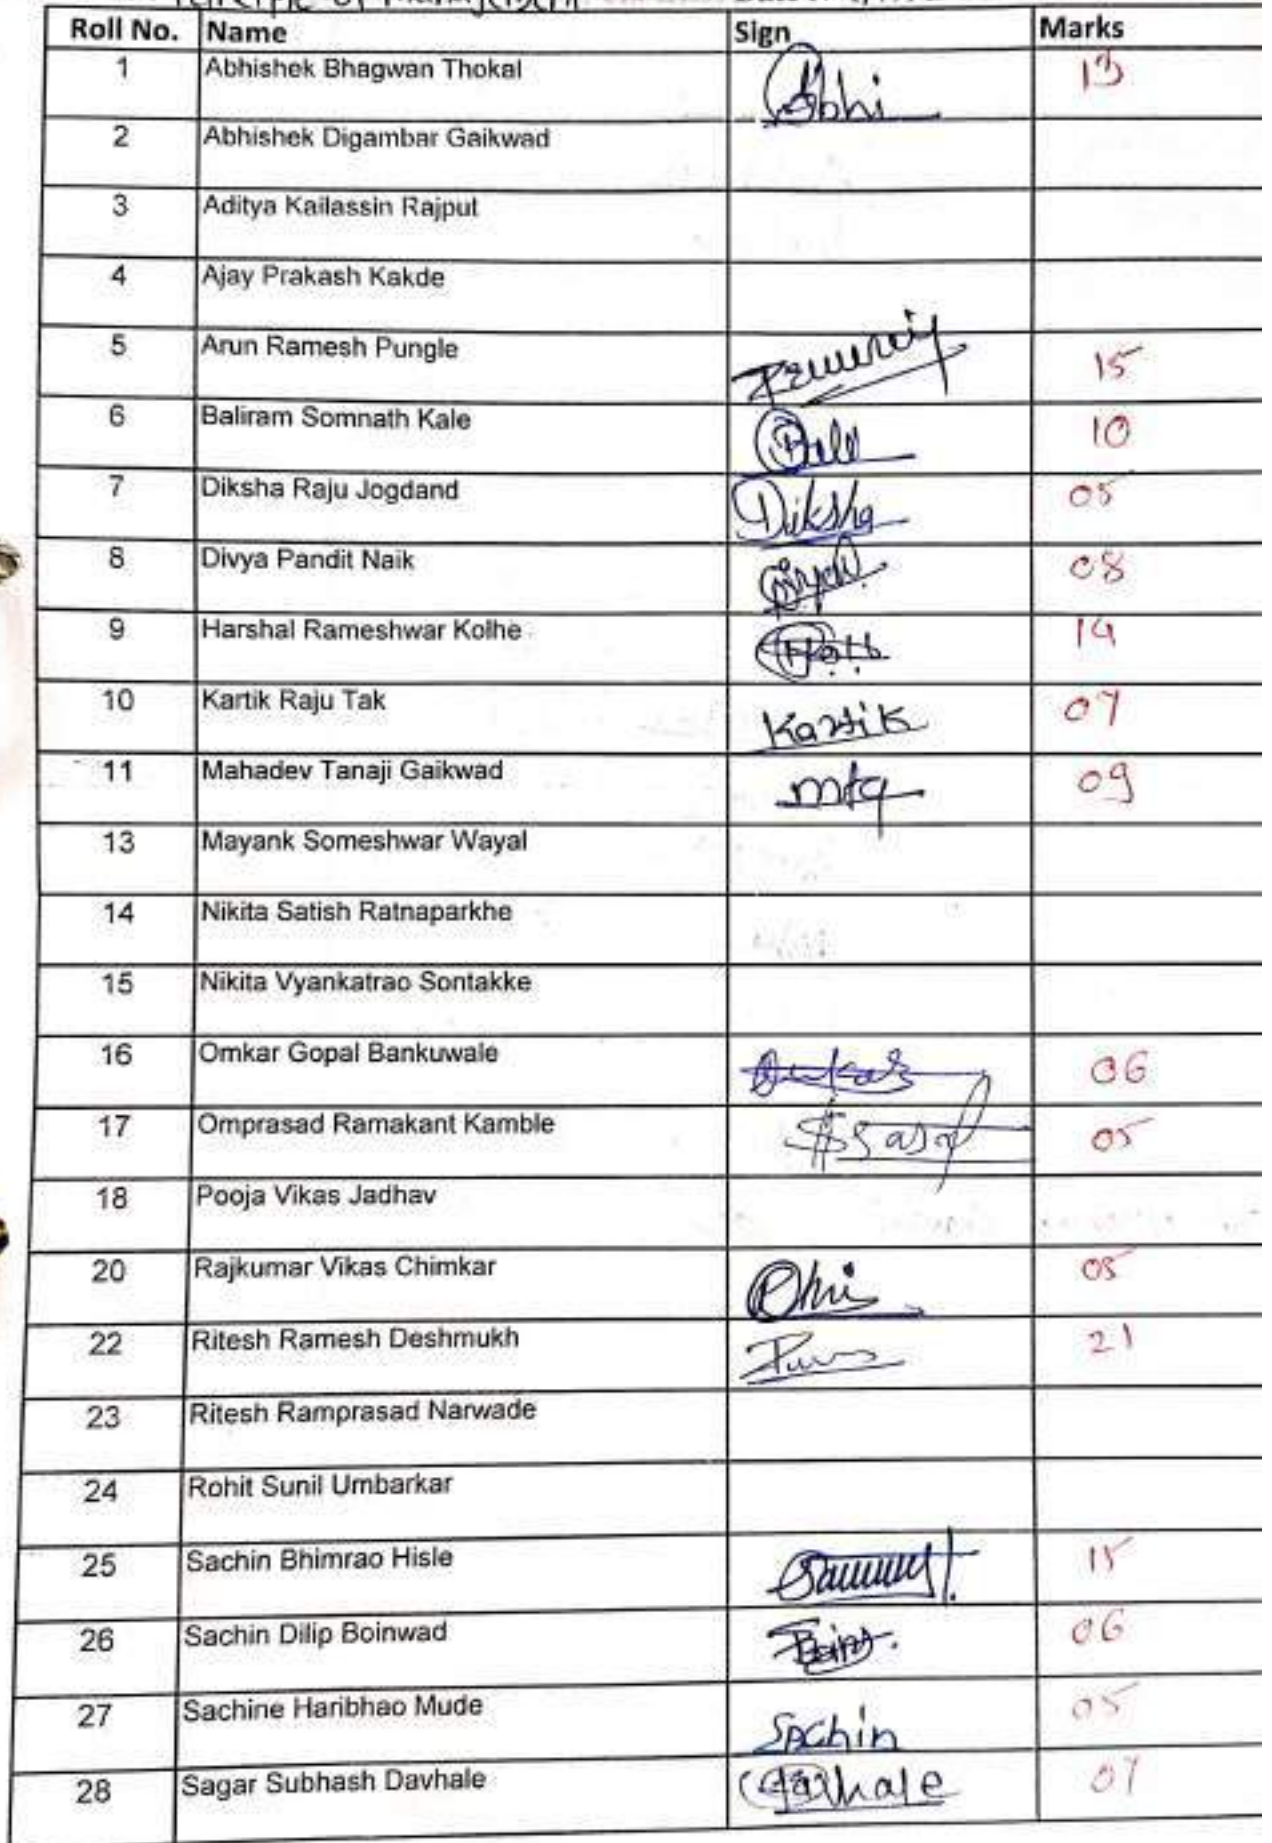 Principle of Management
Roll No. Name Sign Marks
1 Abhishek Bhagwan Thokal Abhi 13
2 Abhishek Digambar Gaikwad
3 Aditya Kailassin Rajput
4 Ajay Prakash Kakde
5 Arun Ramesh Pungle 15
6 Baliram Somnath Kale 10
7 Diksha Raju Jogdand Diksha 05
8 Divya Pandit Naik 08
9 Harshal Rameshwar Kolhe 14
10 Kartik Raju Tak Kartik 07
11 Mahadev Tanaji Gaikwad mtg 09
13 Mayank Someshwar Wayal
14 Nikita Satish Ratnaparkhe
15 Nikita Vyankatrao Sontakke
16 Omkar Gopal Bankuwale Omkar 06
17 Omprasad Ramakant Kamble 05
18 Pooja Vikas Jadhav
20 Rajkumar Vikas Chimkar 05
22 Ritesh Ramesh Deshmukh 21
23 Ritesh Ramprasad Narwade
24 Rohit Sunil Umbarkar
25 Sachin Bhimrao Hisle 15
26 Sachin Dilip Boinwad 06
27 Sachine Haribhao Mude Sachin 05
28 Sagar Subhash Davhale Davhale 07